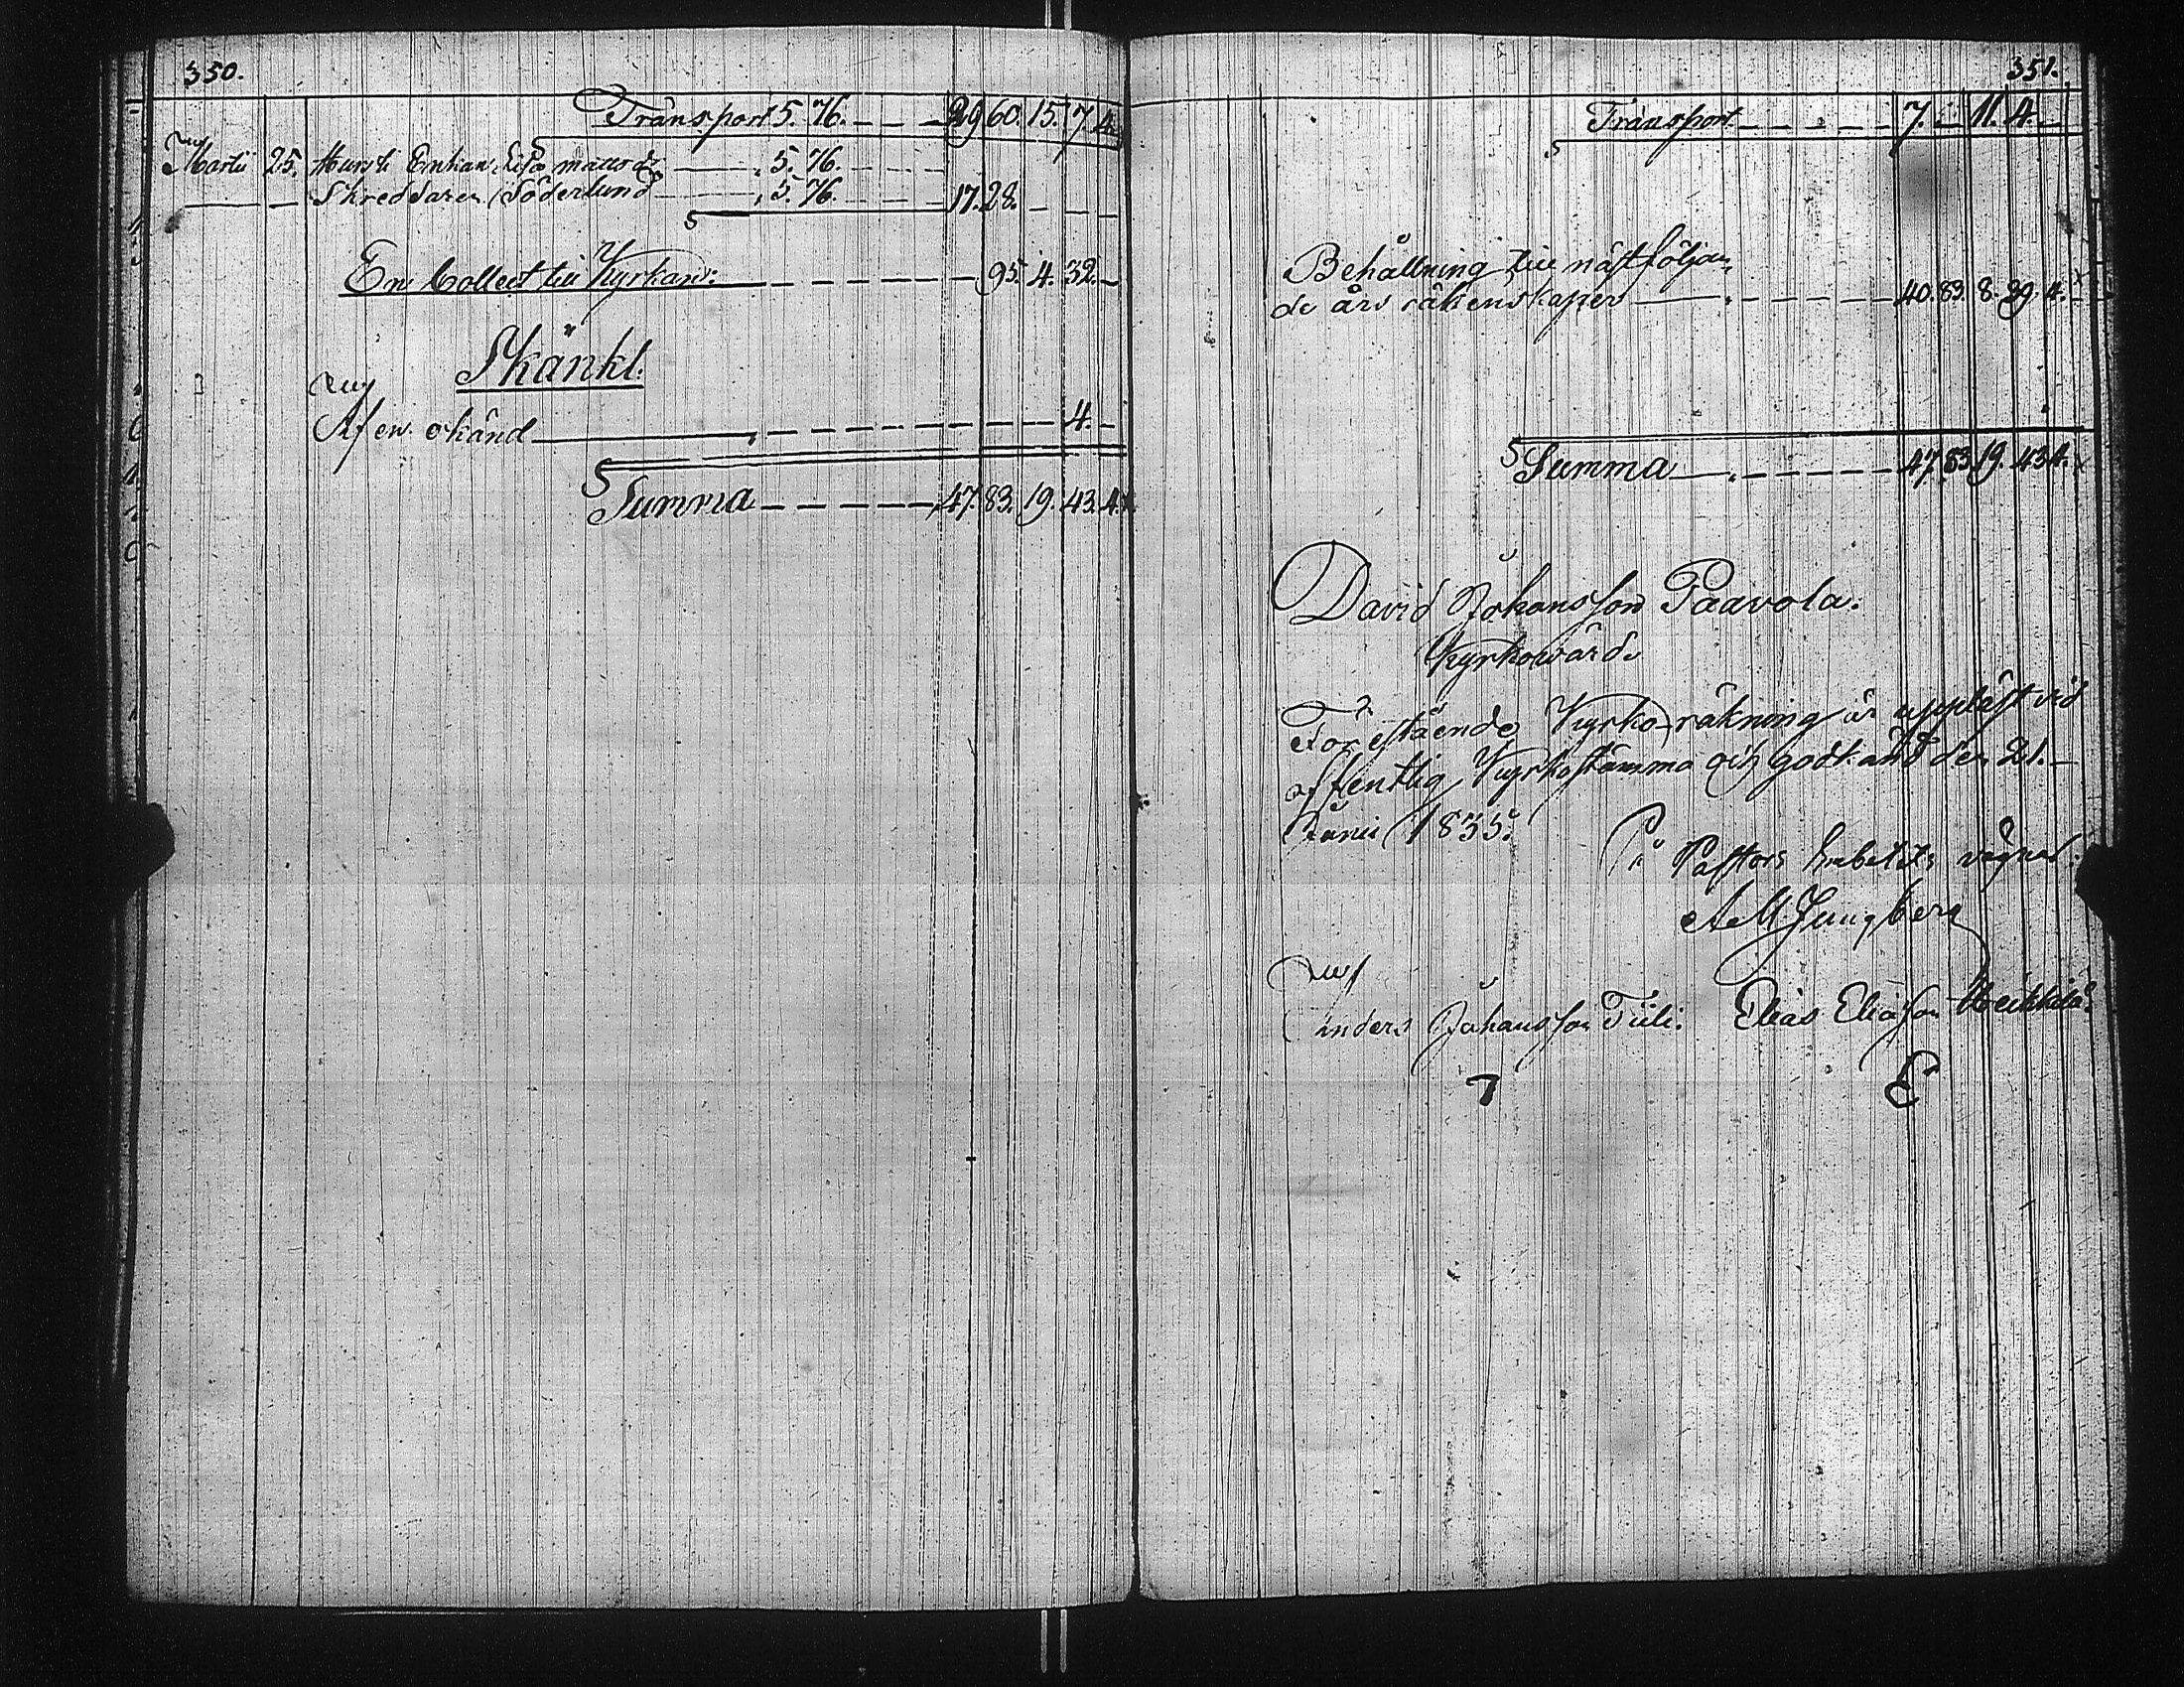 350.
Transport 5. 76. 29 60. 15. 7 4.
Martii 25. Hursti Enkan Lisa 5. 76.
Skreddaren Söderlund 5. 76. 17. 28.
En Collect till Kyrkan: 95. 4. 32.
Skänkl:
Af en okänd 4.
Summa 47. 83. 19. 43. 4.
351.
Transport 7. 11. 4.
Behållning till nästföljan
de års räkenskaper 40. 83. 8. 39. 4.
Summa 47. 83. 19. 43 4.
David Johansson Paavola.
Kyrkovärd.
Förestående Kyrko-räkning är uppläst vid
offentlig Kyrkostämma och godkänd den 21.
Junii 1835.
På Pastors Embetets vägnar:
A M Ljungberg
Anders Johansson Tiili. Elias Eliasson Heikkilä
T E